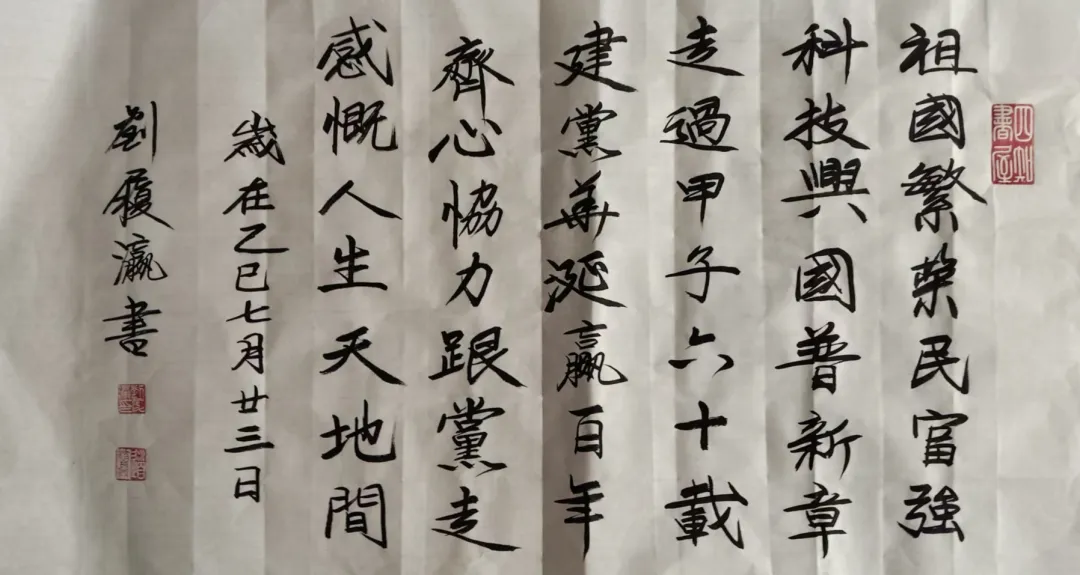 祖國繁榮民富強
科技興國普新章
走過甲子六十載
建黨華涎贏百年
齊心協力跟黨走
感慨人生天地間
歲在乙巳七月廿三日
劉履瀛書